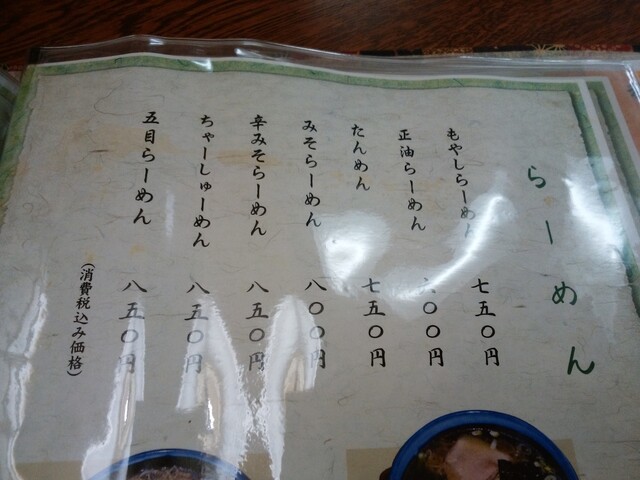 らーめん
もやしらーめん 七五〇円
正油らーめん 六〇〇円
たんめん 七五〇円
みそらーめん 八〇〇円
辛みそらーめん 八五〇円
ちゃーしゅーめん 八五〇円
五目らーめん 八五〇円
(消費税込み価格)